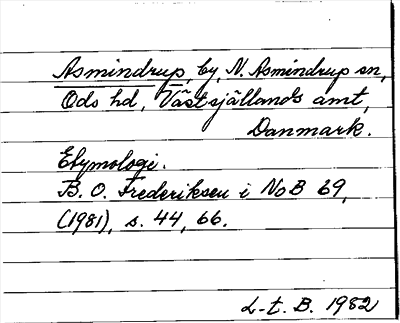 Asmindrup, by, N. Asmindrup sn,
Ods hd, Västsjällands amt,
Danmark.
Etymologi.
B. O. Frederiksen i NoB 69,
(1981), s. 44, 66.
L-t. B. 1982